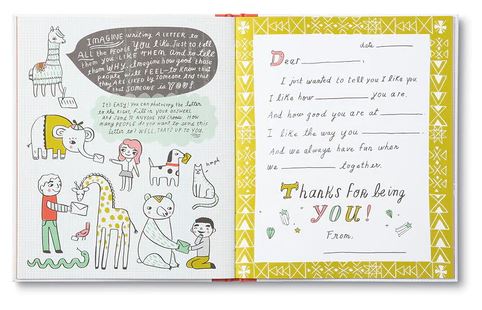 IMAGINE writing A LETTER to
ALL the PEOPLE YOU like. Just to tell
them you LIKE them. And tell
them WHY. Imagine how good those
people will FEEL—to know that
they ARE LIKED by SOMEONE. And that
that SOMEONE is YOU!
It's EASY! You can photocopy the letter
to the right, fill in your answers,
and send to ANYONE you choose. How
many people do you want to send this
letter to? WELL, THAT'S UP TO YOU.
nope
date
Dear
I just wanted to tell you I like you.
I like how you are.
And how good you are at
I like the way you
And we always have fun when
we together.
Thanks for being
YOU!
From,